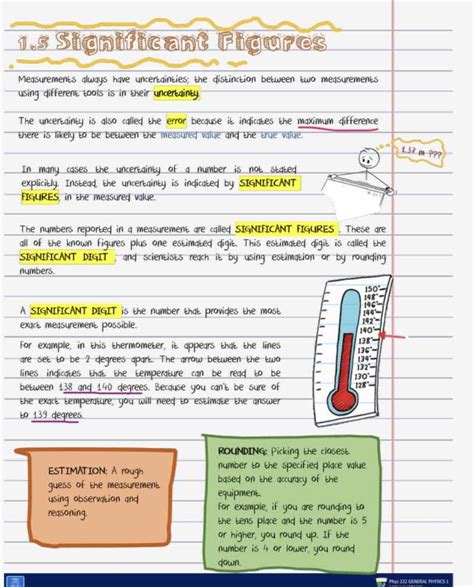 1.5 Significant Figures
Measurements always have uncertainties; the distinction between two measurements
using different tools is in their uncertainty.
The uncertainty is also called the error because it indicates the maximum difference
there is likely to be between the measured value and the true value.
1.37 m ???
In many cases the uncertainty of a number is not stated
explicitly. Instead, the uncertainty is indicated by SIGNIFICANT
FIGURES, in the measured value.
The numbers reported in a measurement are called SIGNIFICANT FIGURES. These are
all of the known figures plus one estimated digit. This estimated digit is called the
SIGNIFICANT DIGIT, and scientists reach it by using estimation or by rounding
numbers.
A SIGNIFICANT DIGIT is the number that provides the most
exact measurement possible.
For example, in this thermometer, it appears that the lines
are set to be 2 degrees apart. The arrow between the two
lines indicates that the temperature can be read to be
between 138 and 140 degrees. Because you can't be sure of
the exact temperature, you will need to estimate the answer
to 139 degrees.
150°
148°
146°
144°
142°
140°
138°
136°
134°
132°
130°
128°
ESTIMATION: A rough
guess of the measurement
using observation and
reasoning.
ROUNDING: Picking the closest
number to the specified place value
based on the accuracy of the
equipment.
For example, if you are rounding to
the tens place and the number is 5
or higher, you round up. If the
number is 4 or lower, you round
down.
Phys 222 GENERAL PHYSICS 1